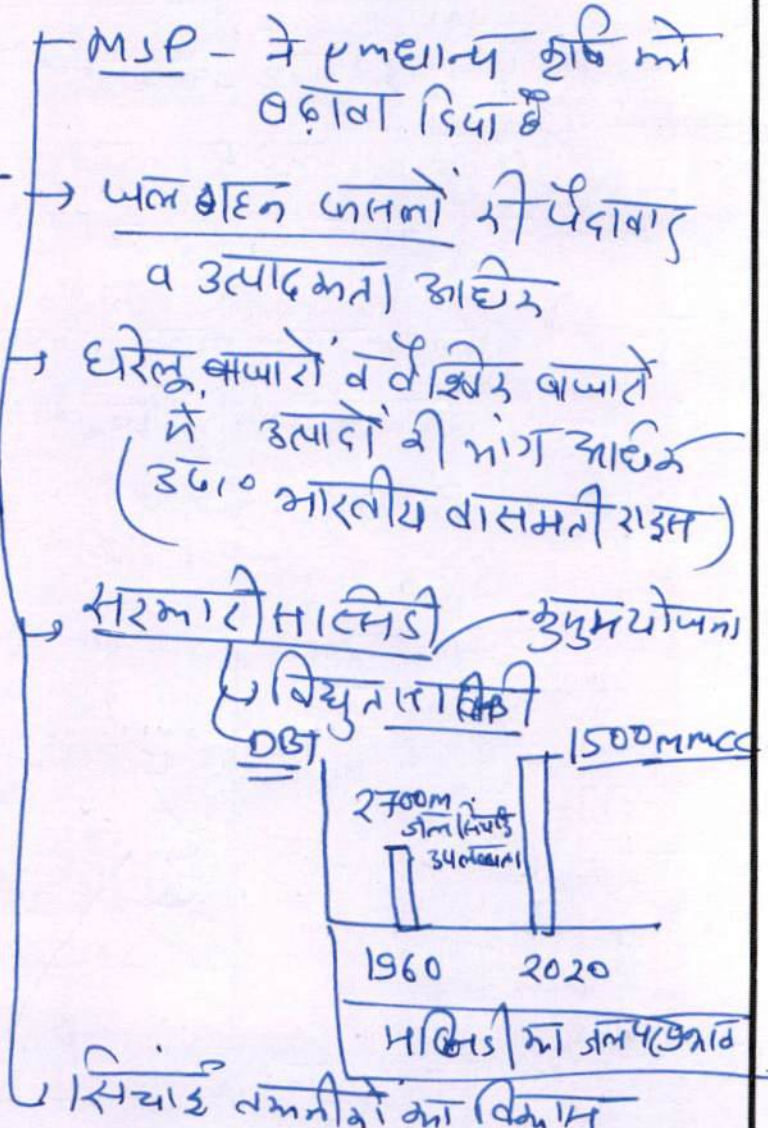 MSP - ने एकधान्य कृषि को
बढ़ावा दिया है
→ जल गहन फसलों की पैदावार
व उत्पादकता अधिक
→ घरेलू बाजारों व वैश्विक बाजारों
में उत्पादों की मांग अधिक
(उदा० भारतीय बासमती राइस)
→ सरकारी सब्सिडी - कुसुम योजना
→ विद्युत सब्सिडी
DBT
1500mmcc
2700m
उपलब्धता
1960 2020
सब्सिडी का जल पर प्रभाव
→ सिंचाई तकनीकों का विकास